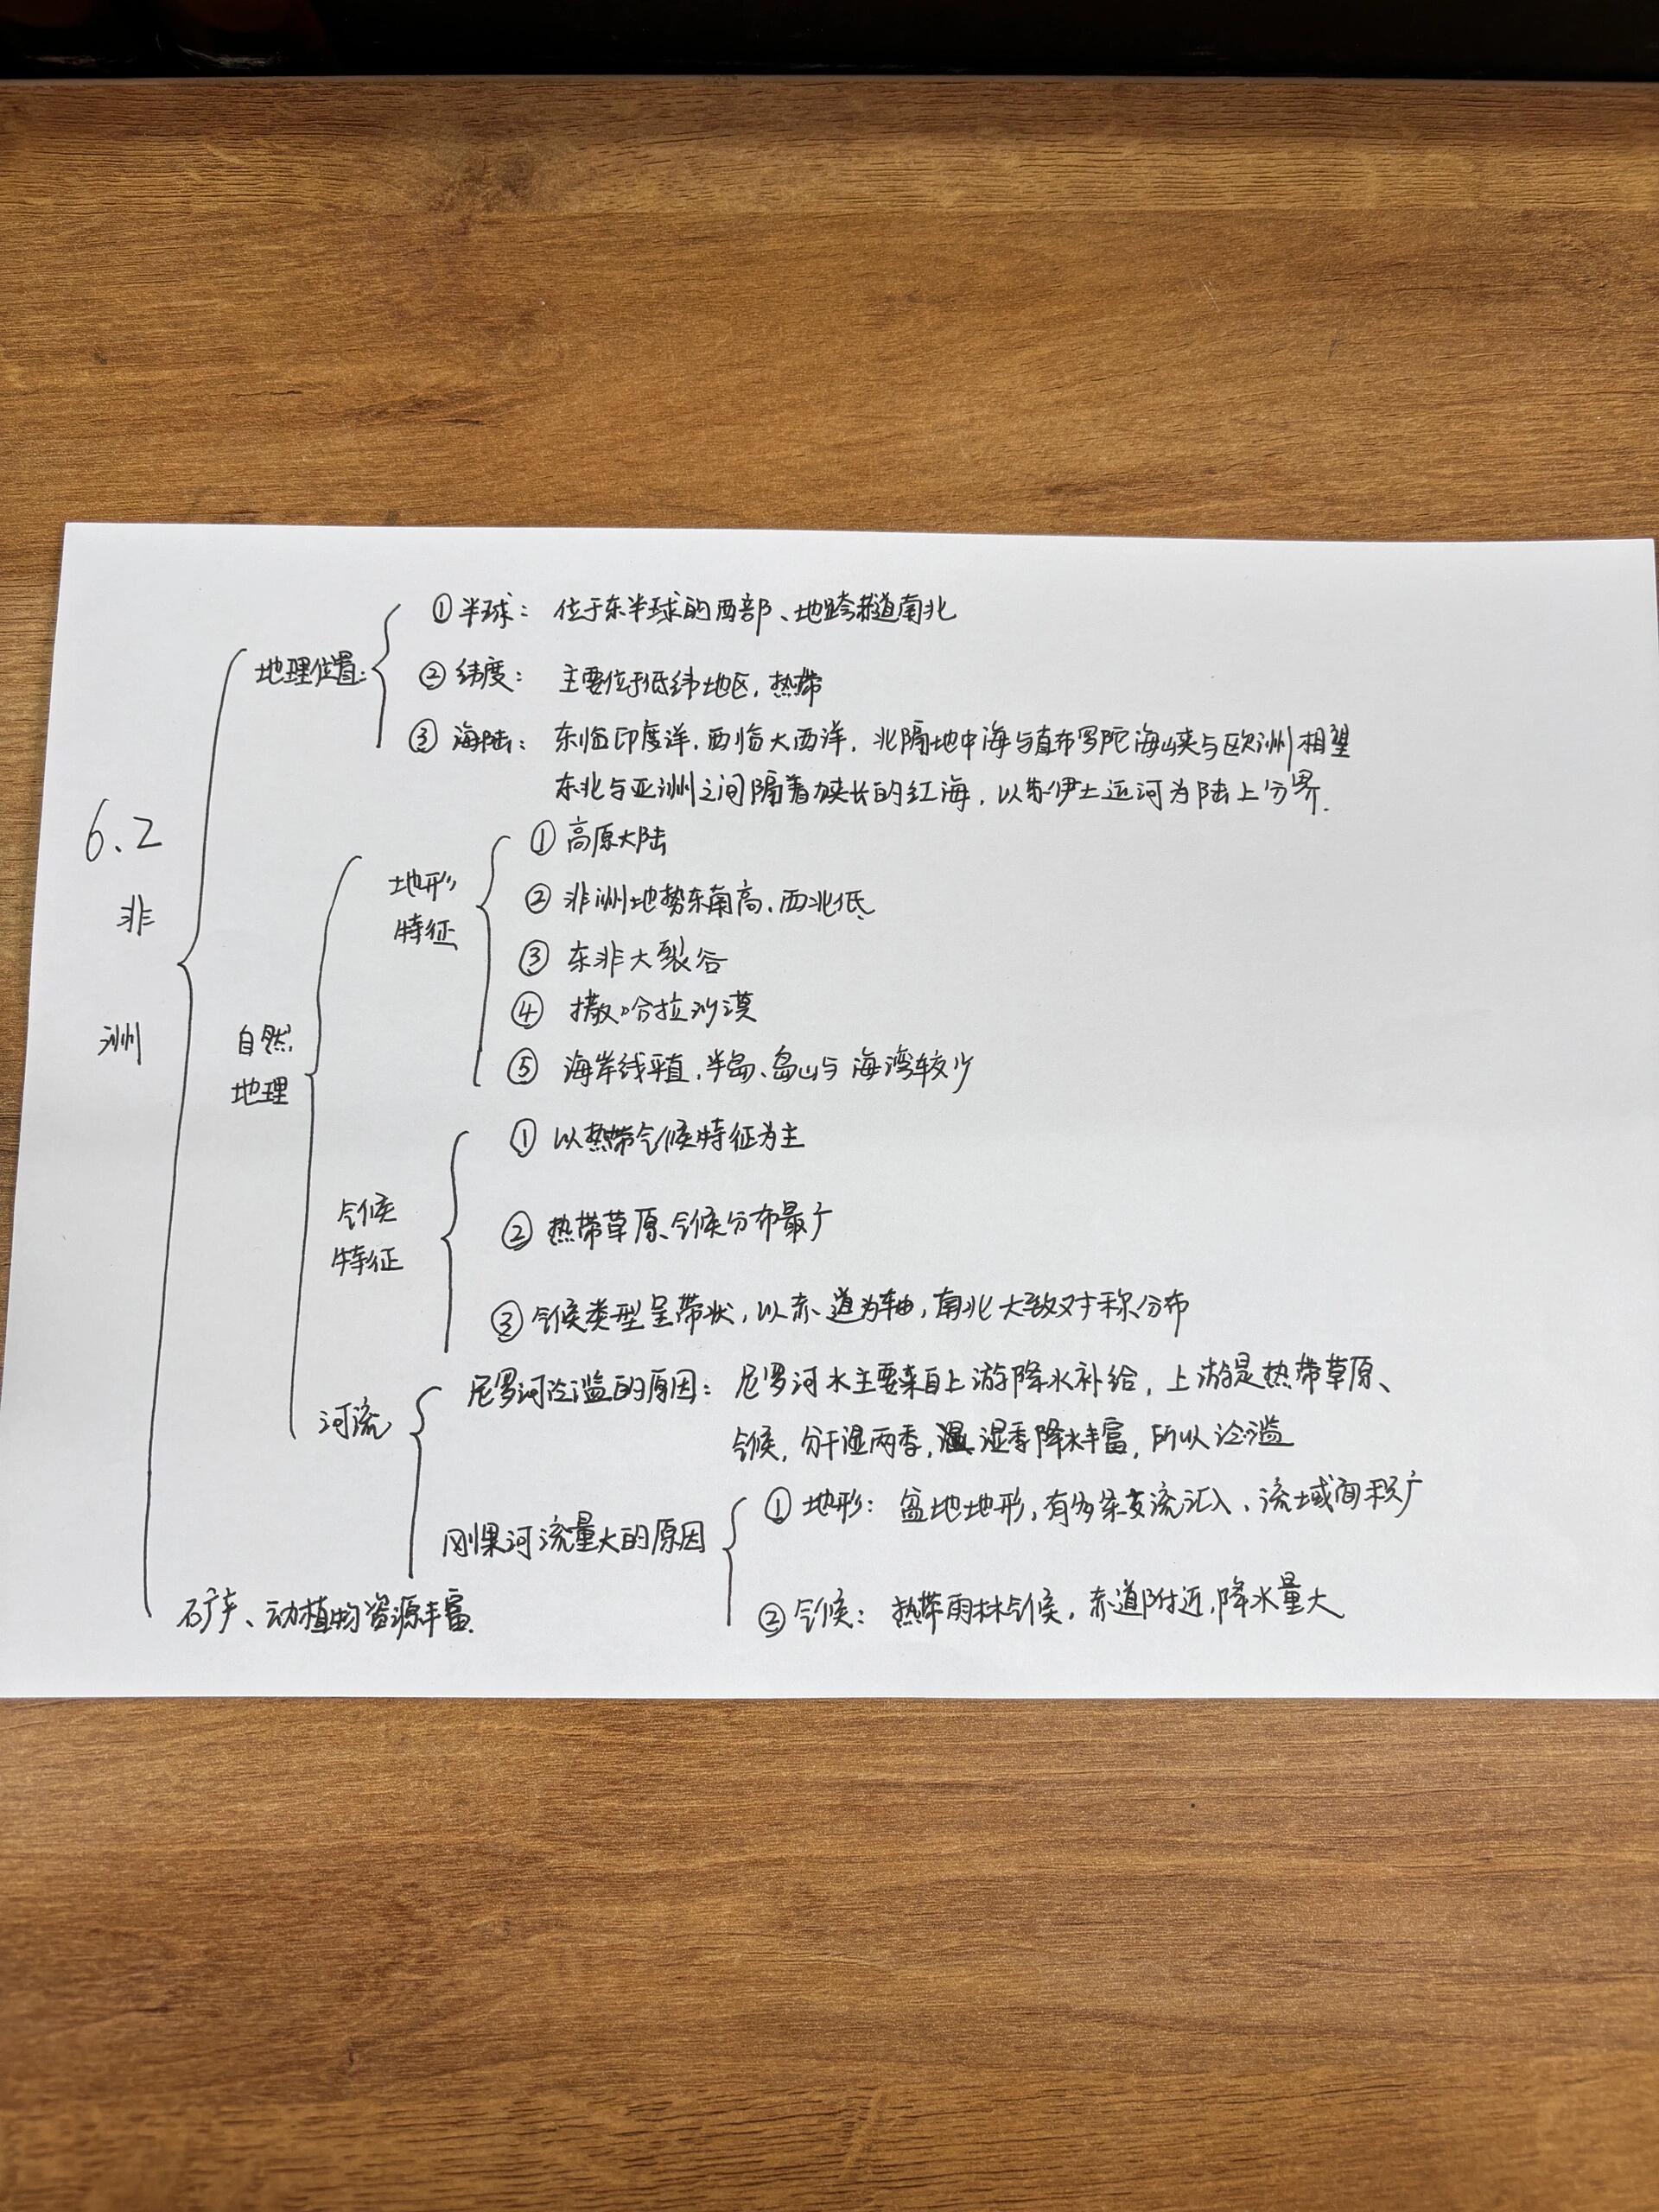 6.2
非
洲
地理位置:
① 半球: 位于东半球的西部、地跨赤道南北
② 纬度: 主要位于低纬地区, 热带
③ 海陆: 东临印度洋, 西临大西洋, 北隔地中海与直布罗陀海峡与欧洲相望
东北与亚洲之间隔着狭长的红海, 以苏伊士运河为陆上分界.
自然
地理
地形
特征
① 高原大陆
② 非洲地势东南高、西北低
③ 东非大裂谷
④ 撒哈拉沙漠
⑤ 海岸线平直, 半岛、岛屿与海湾较少
气候
特征
① 以热带气候特征为主
② 热带草原气候分布最广
③ 气候类型呈带状, 以赤道为轴, 南北大致对称分布
河流
尼罗河泛滥的原因: 尼罗河水主要来自上游降水补给, 上游是热带草原
气候, 分干湿两季, 湿季降水丰富, 所以泛滥
刚果河流量大的原因
① 地形: 盆地地形, 有多条支流汇入、流域面积广
② 气候: 热带雨林气候, 赤道附近, 降水量大
矿产、动植物资源丰富.